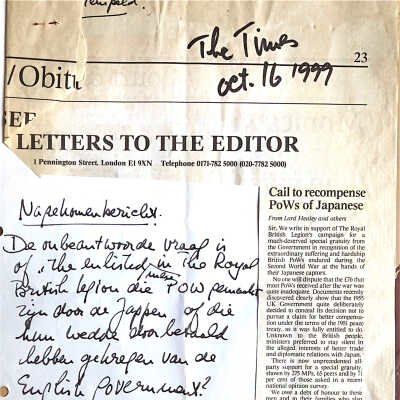 The Times
oct. 16 1999
23
/Obitu
SEE
LETTERS TO THE EDITOR
1 Pennington Street, London E1 9XN Telephone 0171-782 5000 (020-7782 5000)
Nagekomen bericht.
De onbeantwoorde vraag is
of "the enlisted men" in the Royal
British Legion die POW gemaakt
zijn door de Jappen of die
hun wedde doorbetaald
hebben gekregen van de
English Government?
Call to recompense
PoWs of Japanese
From Lord Healey and others
Sir, We write in support of The Royal
British Legion's campaign for a
much-deserved special gratuity from
the Government in recognition of the
extraordinary suffering and hardship
British PoWs endured during the
Second World War at the hands of
their Japanese captors.
No one will dispute that the £76 that
most PoWs received after the war was
quite inadequate. Documents recently
discovered clearly show that the 1955
UK Government quite deliberately
decided to conceal its decision not to
pursue a claim for better compensation
under the terms of the 1951 peace
treaty, as it was fully entitled to do.
Unknown to the British people,
ministers preferred to stay silent in
the alleged interests of better trade
and diplomatic relations with Japan.
There is now unprecedented all-
party support for a special gratuity,
shown by 275 MPs, 65 peers and by 71
per cent of those asked in a recent
national opinion survey.
We owe a debt of honour to these
men and to their families who also